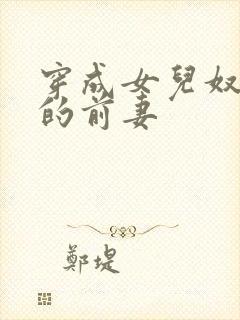 穿成女兒奴
的前妻
鄭堤